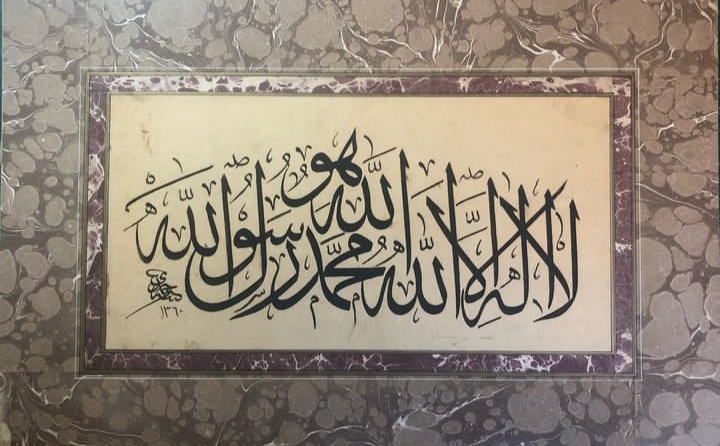 لا اله الا الله هو الله محمد رسول الله
١٣٦٠